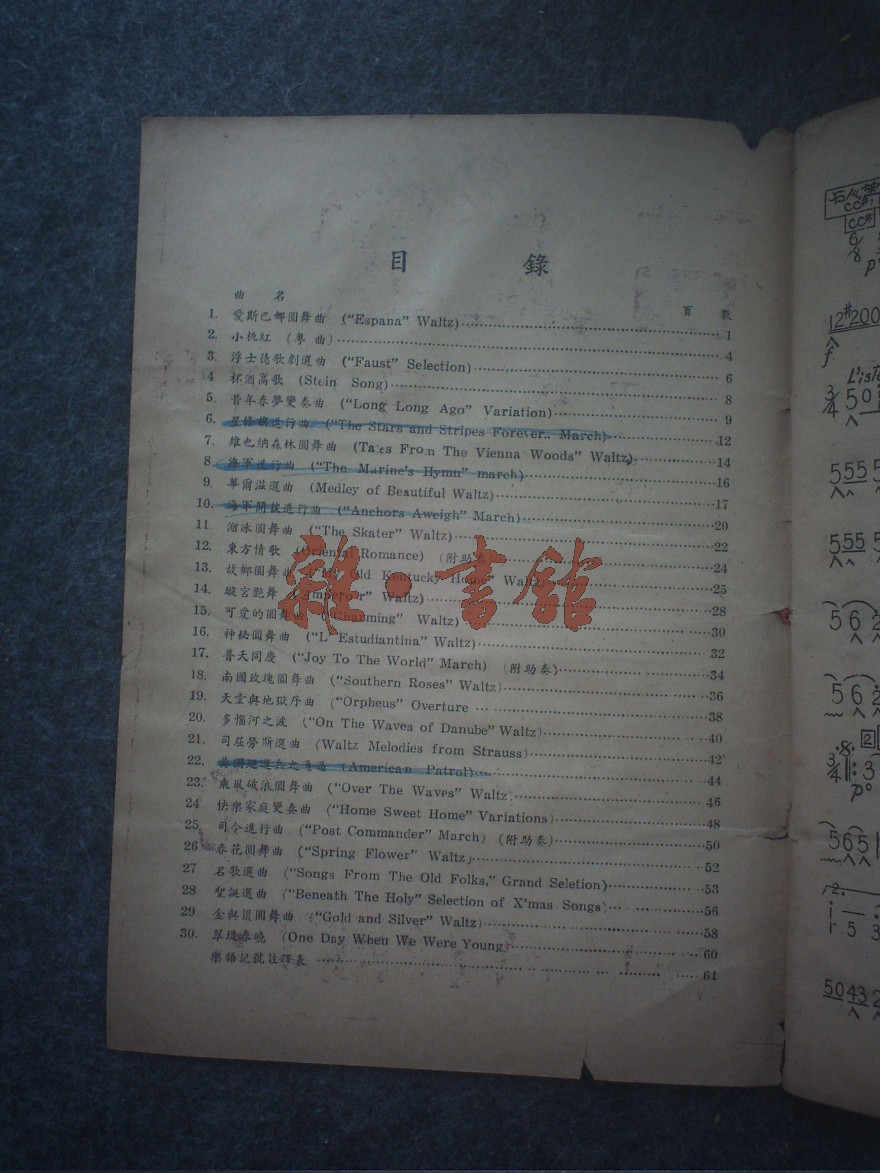 目 錄
曲 名 頁 數
1. 愛斯巴娜圓舞曲 ("Espana" Waltz) 1
2. 小桃紅 (粵曲) 4
3. 浮士德歌劇選曲 ("Faust" Selection) 6
4 杯酒高歌 (Stein Song) 8
5. 昔年春夢變奏曲 ("Long Long Ago" Variation) 9
6. 星條旗進行曲 ("The Stars and Stripes Forever.. March) 12
7. 維也納森林圓舞曲 (Ta es From The Vienna Woods" Waltz) 14
8. 海軍進行曲 ("The Marine's Hymn" march) 16
9. 華爾滋選曲 (Medley of Beautiful Waltz) 17
10. 海軍開拔進行曲 ("Anchors Aweigh" March) 20
11 溜冰圓舞曲 ("The Skater" Waltz) 22
12. 東方情歌 (Oriental Romance) (附助奏) 24
13. 故鄉圓舞曲 ("My Old Kentucky Home" Waltz) 25
14. 璇宮艷舞 ("Emperor" Waltz) 28
15. 可愛的圓舞曲 ("Charming" Waltz) 30
16. 神秘圓舞曲 ("L' Estudiantina" Waltz) 32
17. 普天同慶 ("Joy To The World" March) (附助奏) 34
18. 南國玫瑰圓舞曲 ("Southern Roses" Waltz) 36
19. 天堂與地獄序曲 ("Orpheus" Overture 38
20. 多惱河之波 ("On The Waves of Danube" Waltz) 40
21. 司屈勞斯選曲 (Waltz Melodies from Strauss) 42
22. (American Patrol) 44
23. 乘風破浪圓舞曲 ("Over The Waves" Waltz) 46
24 快樂家庭變奏曲 ("Home Sweet Home" Variations) 48
25. 司令進行曲 ("Post Commander" March) (附助奏) 50
26 春花圓舞曲 ("Spring Flower" Waltz) 52
27 名歌選曲 ("Songs From The Old Folks," Grand Seletion) 53
28. 聖誕選曲 ("Beneath The Holy" Selection of X'mas Songs) 56
29 金與銀圓舞曲 ("Gold and Silver" Waltz) 58
30. 翠堤春曉 (One Day When We Were Young) 60
樂語記號註釋表 61
雜·書館
12 200
f
3/4 50
555 5
555 5
5 6 2
5 6 2
3/4
p
565
2.
i —
5 3
50 43 2